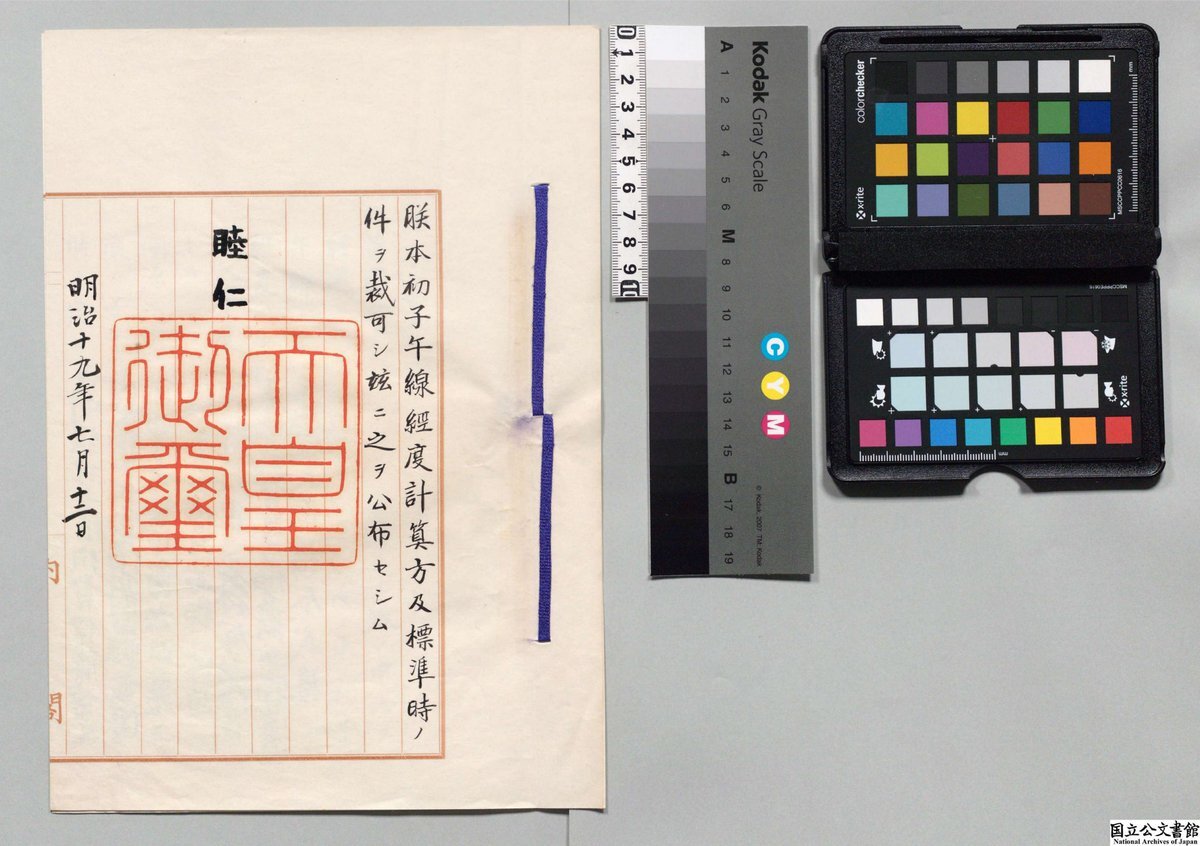 朕本初子午線經度計算方及標準時ノ
件ヲ裁可シ玆ニ之ヲ公布セシム
睦仁
天皇
御璽
明治十九年七月十二日
内
閣
0 1 2 3 4 5 6 7 8 9 10
Kodak Gray Scale
A 1 2 3 4 5 6 M 8 9 10 11 12 13 14 15 B 17 18 19
C Y M
© Kodak, 2007 TM: Kodak
colorchecker
x·rite
mm
MSCCPPCC0616
MSCCPPPE0616
x·rite
mm
国立公文書館
National Archives of Japan